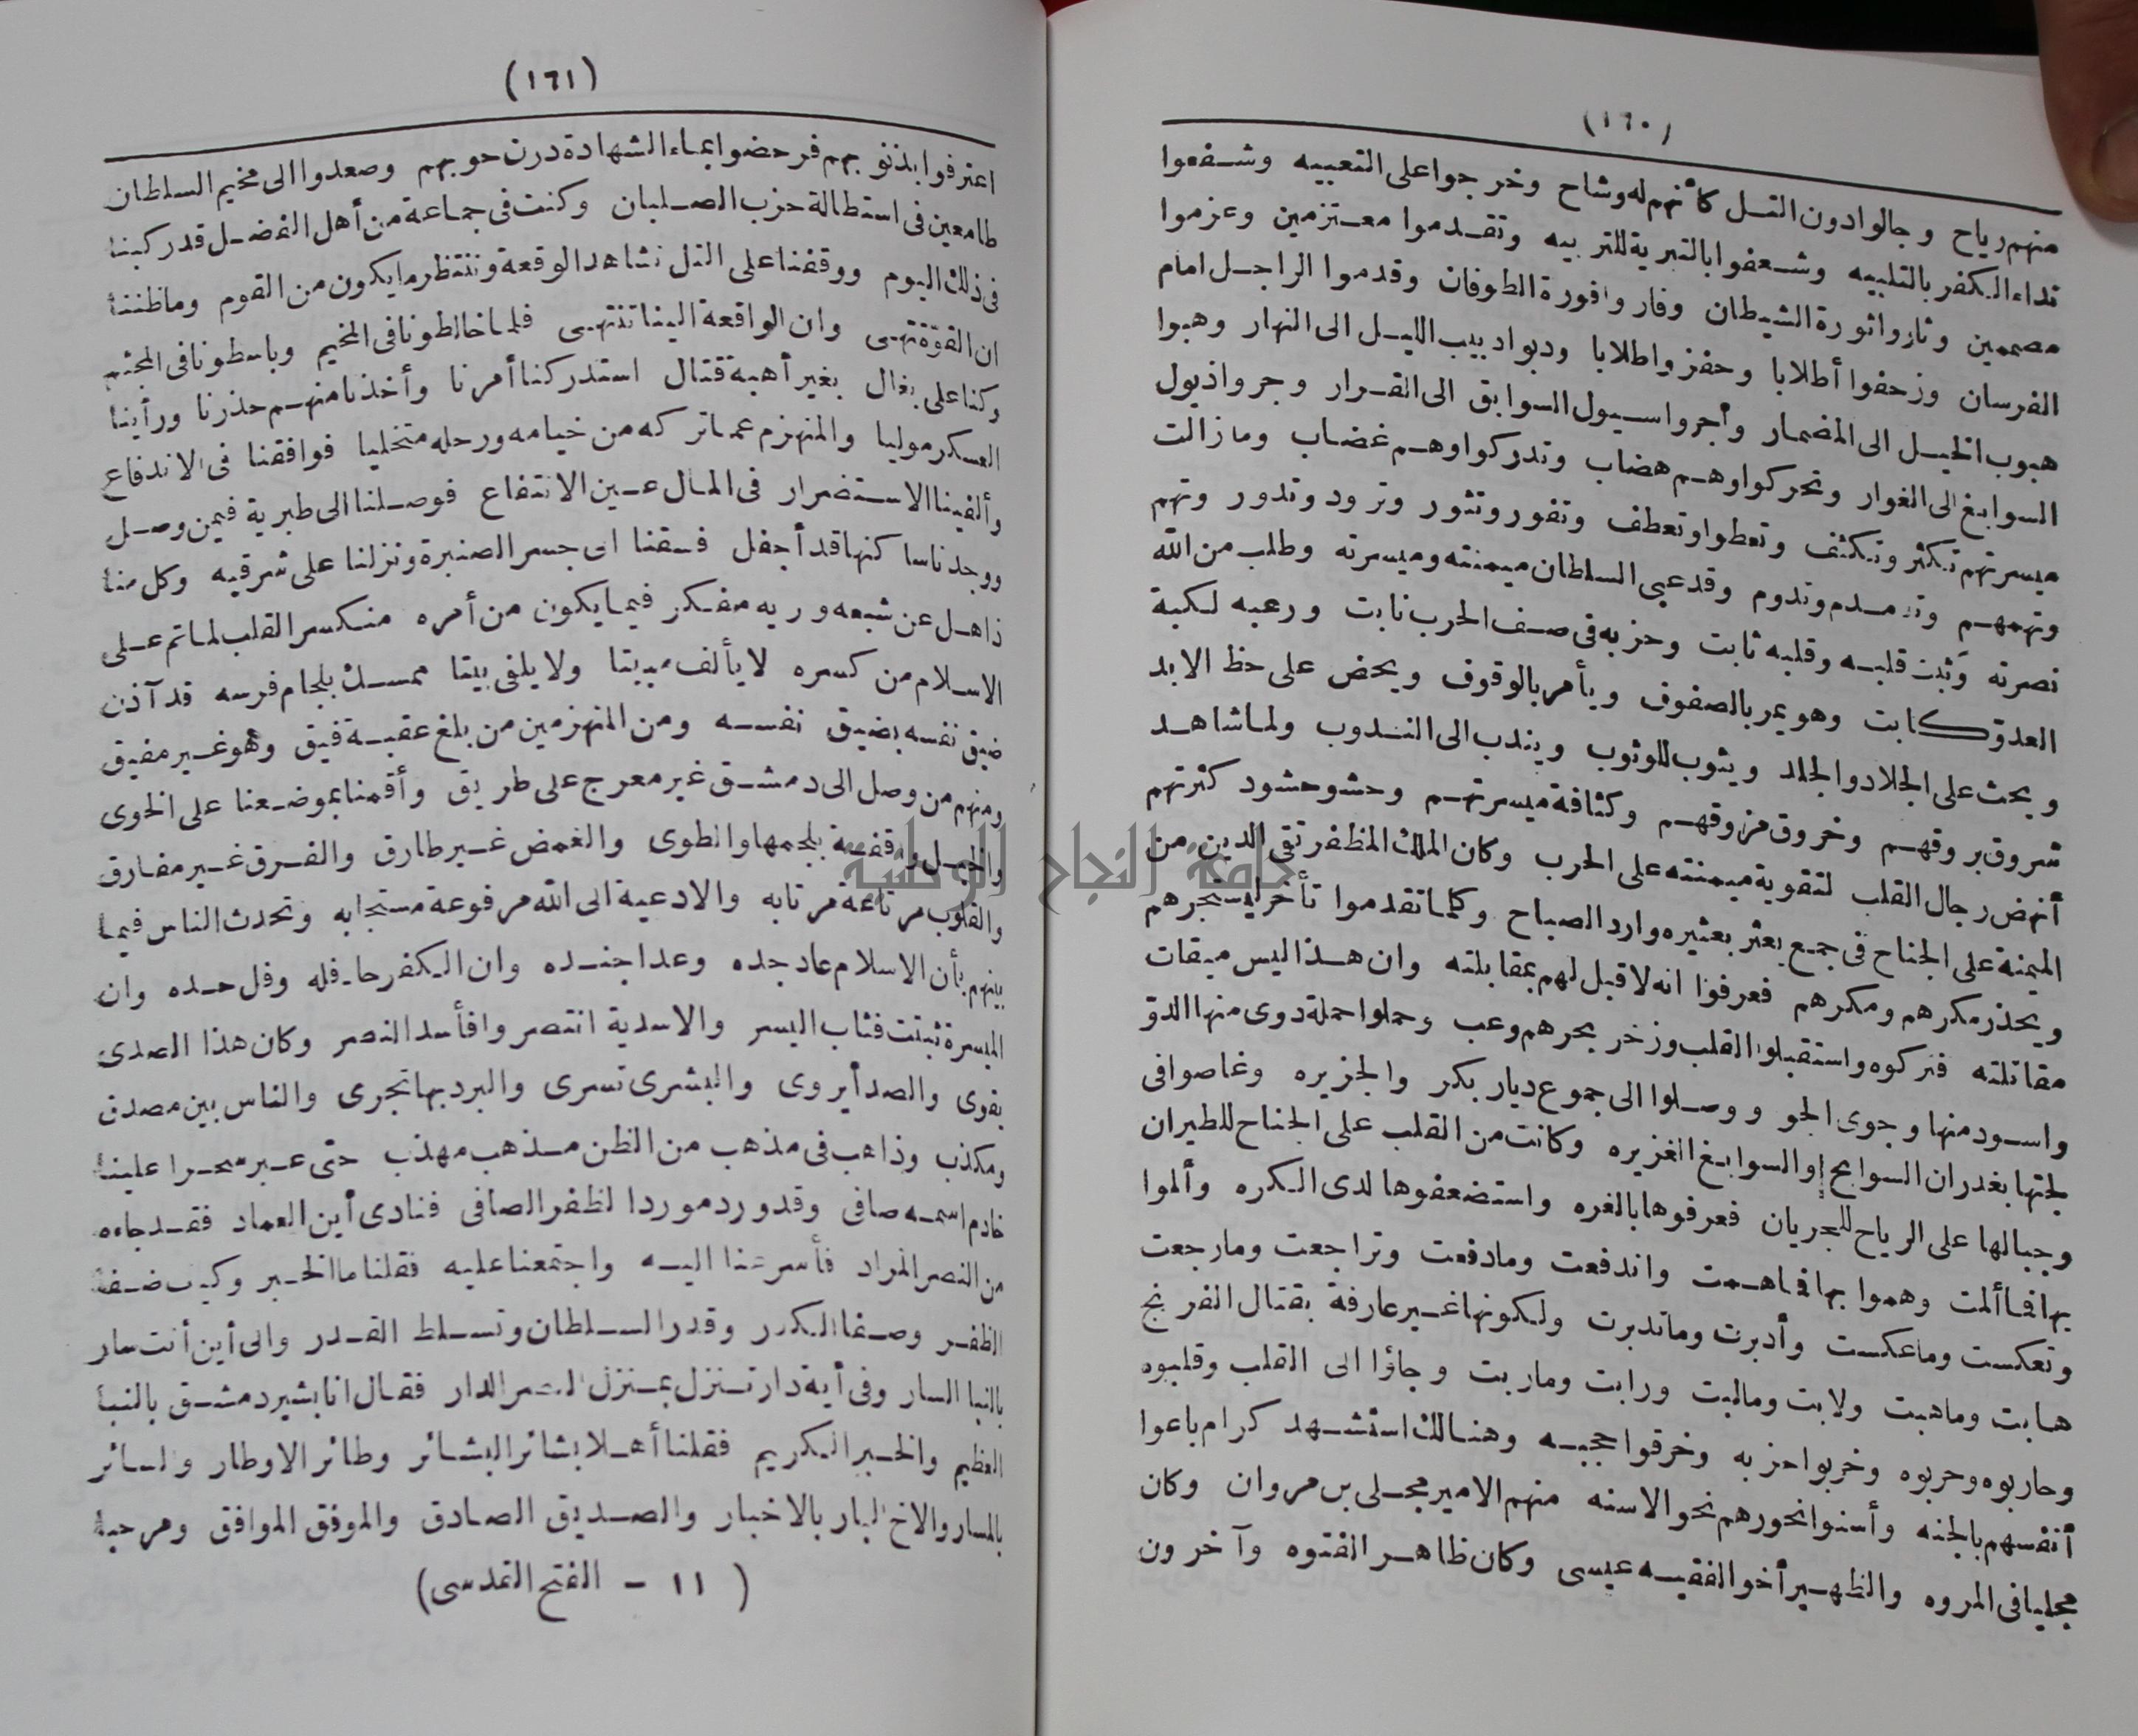 (١٦٠)
منهم رياح وجالوا دون التل كأنهم له وشاح وخرجوا على التعبيه وشفعوا
نداء الكفر بالتلبيه وشعفوا بالتبرية للتربيه وتقدموا معتزمين وعزموا
مصممين وثاروا ثورة الشيطان وفاروا فورة الطوفان وقدموا الراجل امام
الفرسان وزحفوا أطلابا وحفزوا طلابا ودبوا دبيب الليل الى النهار وهبوا
هبوب الخيل الى المضمار وأجروا سيول السوابق الى القرار وجروا ذيول
السوابغ الى الغوار وتحركوا وهم هضاب وتدركوا وهم غضاب وما زالت
ميسرتهم تكثر وتكثف وتعطوا وتعطف وتفور وتثور وترود وتدور وتهم
وتهمهم وتدمدم وتدوم وقد عبى السلطان ميمنته وميسرته وطلب من الله
نصرته وثبت قلبه وقلبه ثابت وحزبه فى صف الحرب نابت ورعبه لكبة
العدو كابت وهو يمر بالصفوف ويأمر بالوقوف ويحض على حظ الابد
ويحث على الجلاد والجلد ويثوب للوثوب ويندب الى الندوب ولما شاهد
شروق بروقهم وخروق مزوقهم وكثافة ميسرتهم وحشو حشود كثرتهم
أنهض رجال القلب لتقوية ميمنته على الحرب وكان الملك المظفر تقى الدين من
الميمنة على الجناح فى جمع يعثر بعثيره وارد الصباح وكلما تقدموا تأخر ليستجرهم
ويحذر مكرهم ومكرهم فعرفوا انه لا قبل لهم بمقابلته وان هذا ليس ميقات
مقاتلته فتركوه واستقبلوا القلب وزخر بحرهم وعب وحملوا حملة دوى منها الدو
واسود منها وجوى الجو ووصلوا الى جموع ديار بكر والجزيره وغاصوا فى
لجتها بغدران السوابح والسوابغ الغزيره وكانت من القلب على الجناح للطيران
وجبالها على الرياح للجريان فعرفوها بالغره واستضعفوها لدى الكره وألموا
بها فما ألمت وهموا بها فما همت واندفعت ومادفعت وتراجعت ومارجعت
وتعكست وماعكست وأدبرت وماتدبرت ولكونها غير عارفة بقتال الفرنج
هابت وماهبت ولابت ومالبت ورابت وماربت وجاؤا الى القلب وقلبوه
وحاربوه وحربوه وخربوا حزبه وخرقوا حجبه وهنالك استشهد كرام باعوا
أنفسهم بالجنه وأسنوا نحورهم نحو الاسنه منهم الامير مجلى بن مروان وكان
مجليا فى المروه والظهير أخو الفقيه عيسى وكان ظاهر الفتوه وآخرون
(١٦١)
اعترفوا بذنوبهم فرحضوا بماء الشهادة درن حوبهم وصعدوا الى مخيم السلطان
طامعين فى استطالة حزب الصلبان وكنت فى جماعة من أهل الفضل قد ركبنا
فى ذلك اليوم ووقفنا على التل نشاهد الوقعة وننتظر ما يكون من القوم وماظننا
ان القوة تهى وان الواقعة الينا تنتهى فلما خالطونا فى المخيم وباسطونا فى المجثم
وكنا على بغال بغير أهبة قتال استدركنا أمرنا وأخذنا منهم حذرنا ورأينا
العسكر موليا والمنهزم عما تركه من خيامه ورحله متخليا فوافقنا فى الاندفاع
وألفينا الاستضرار فى المال عين الانتفاع فوصلنا الى طبرية فيمن وصل
ووجدنا ساكنها قد أجفل فسقنا الى جسر الصنبرة ونزلنا على شرقيه وكل منا
ذاهل عن شبعه وريه مفكر فيما يكون من أمره منكسر القلب لما تم على
الاسلام من كسره لا يألف مبيتا ولا يلفى بيتا ممسك بلجام فرسه قد آذن
ضيق نفسه بضيق نفسه ومن المنهزمين من بلغ عقبة فيق وهو غير مفيق
ومنهم من وصل الى دمشق غير معرج على طريق وأقمنا بموضعنا على الخوى
والخيل واقفة بلجمها والطوى والغمض غير طارق والفرق غير مفارق
والقلوب مرتاعة مرتابه والادعية الى الله مرفوعة مستجابه وتحدث الناس فيما
بينهم بأن الاسلام عاد جده وعدا جنده وان الكفر حار فله وفل حده وان
الميسرة ثبتت فثاب اليسر والاسدية انتصروا فأسد النصر وكان هذا الصدى
يقوى والصدأ يروى والبشرى تسرى والبرد بها تجرى والناس بين مصدق
ومكذب وذاهب فى مذهب من الظن مذهب مهذب حتى عبر سحرا علينا
خادم اسمه صافى وقد ورد مورد الظفر الصافى فنادى أين العماد فقد جاءه
من النصر المراد فأسرعنا اليه واجتمعنا عليه فقلنا ما الخبر وكيف ضفا
الظفر وصفا الكدر وقدر السلطان وتسلط القدر والى أين أنت سار
بالنبا السار وفى أية دار تنزل بمنزل النصر الدار فقال انا بشير دمشق بالنبا
العظيم والخبر الكريم فقلنا أهلا ببشائر البشائر وطائر الاوطار والسائر
بالمسار والاخ البار بالاخبار والصديق الصادق والموفق الموافق ومرحبا
(١١ - الفتح القدسى)
جامعة النجاح الوطنية